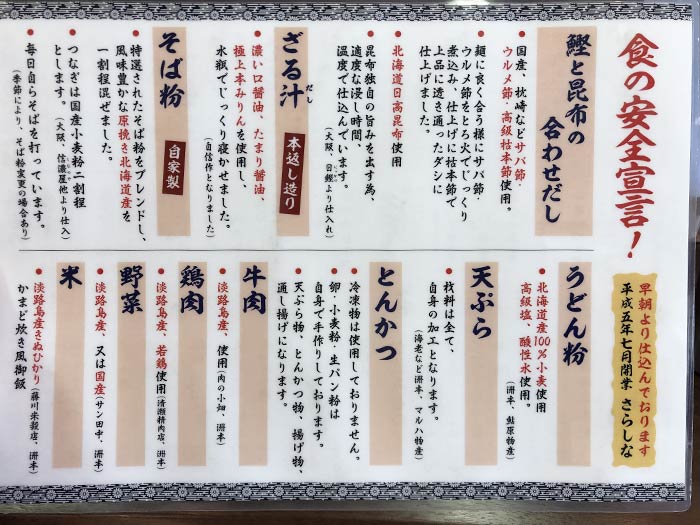 食の安全宣言!
早朝より仕込んでおります
平成五年七月開業 さらしな
鰹と昆布の
合わせだし
国産、枕崎などサバ節・
ウルメ節・高級枯本節使用。
麺に良く合う様にサバ節・
ウルメ節をとろ火でじっくり
煮込み、仕上げに枯本節で
上品に透き通ったダシに
仕上げました。
北海道日高昆布使用
昆布独自の旨みを出す為、
適度な浸し時間、
温度で仕込んでいます。
(大阪、日鰹より仕入れ)
ざる汁
だし
本返し造り
濃い口醤油、たまり醤油、
極上本みりんを使用し、
水瓶でじっくり寝かせました。
(自信作となりました)
そば粉
自家製
特選されたそば粉をブレンドし、
風味豊かな原挽き北海道産を
一割程混ぜました。
つなぎは国産小麦粉二割程
とします。
(大阪、信濃屋他より仕入)
毎日自らそばを打っています。
(季節により、そば粉変更の場合あり)
うどん粉
北海道産100%小麦使用
高級塩、酸性水使用。
(洲本、鮎原物産)
天ぷら
材料は全て、
自身の加工となります。
(海老など洲本、マルハ物産)
とんかつ
冷凍物は使用しておりません。
卵・小麦粉・生パン粉は
自身で手作りしております。
天ぷら物、とんかつ物、揚げ物、
通し揚げになります。
牛肉
淡路島産、使用(肉の小畑、洲本)
鶏肉
淡路島産、若鶏使用(清瀬精肉店、洲本)
野菜
淡路島産、又は国産(サン田中、洲本)
米
淡路島産きぬひかり(藤川米穀店、洲本)
かまど炊き風御飯